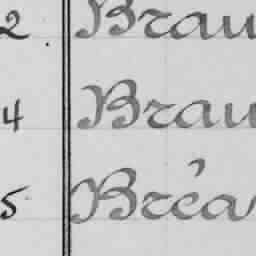 2. Brau
4 Brau
5 Bréa